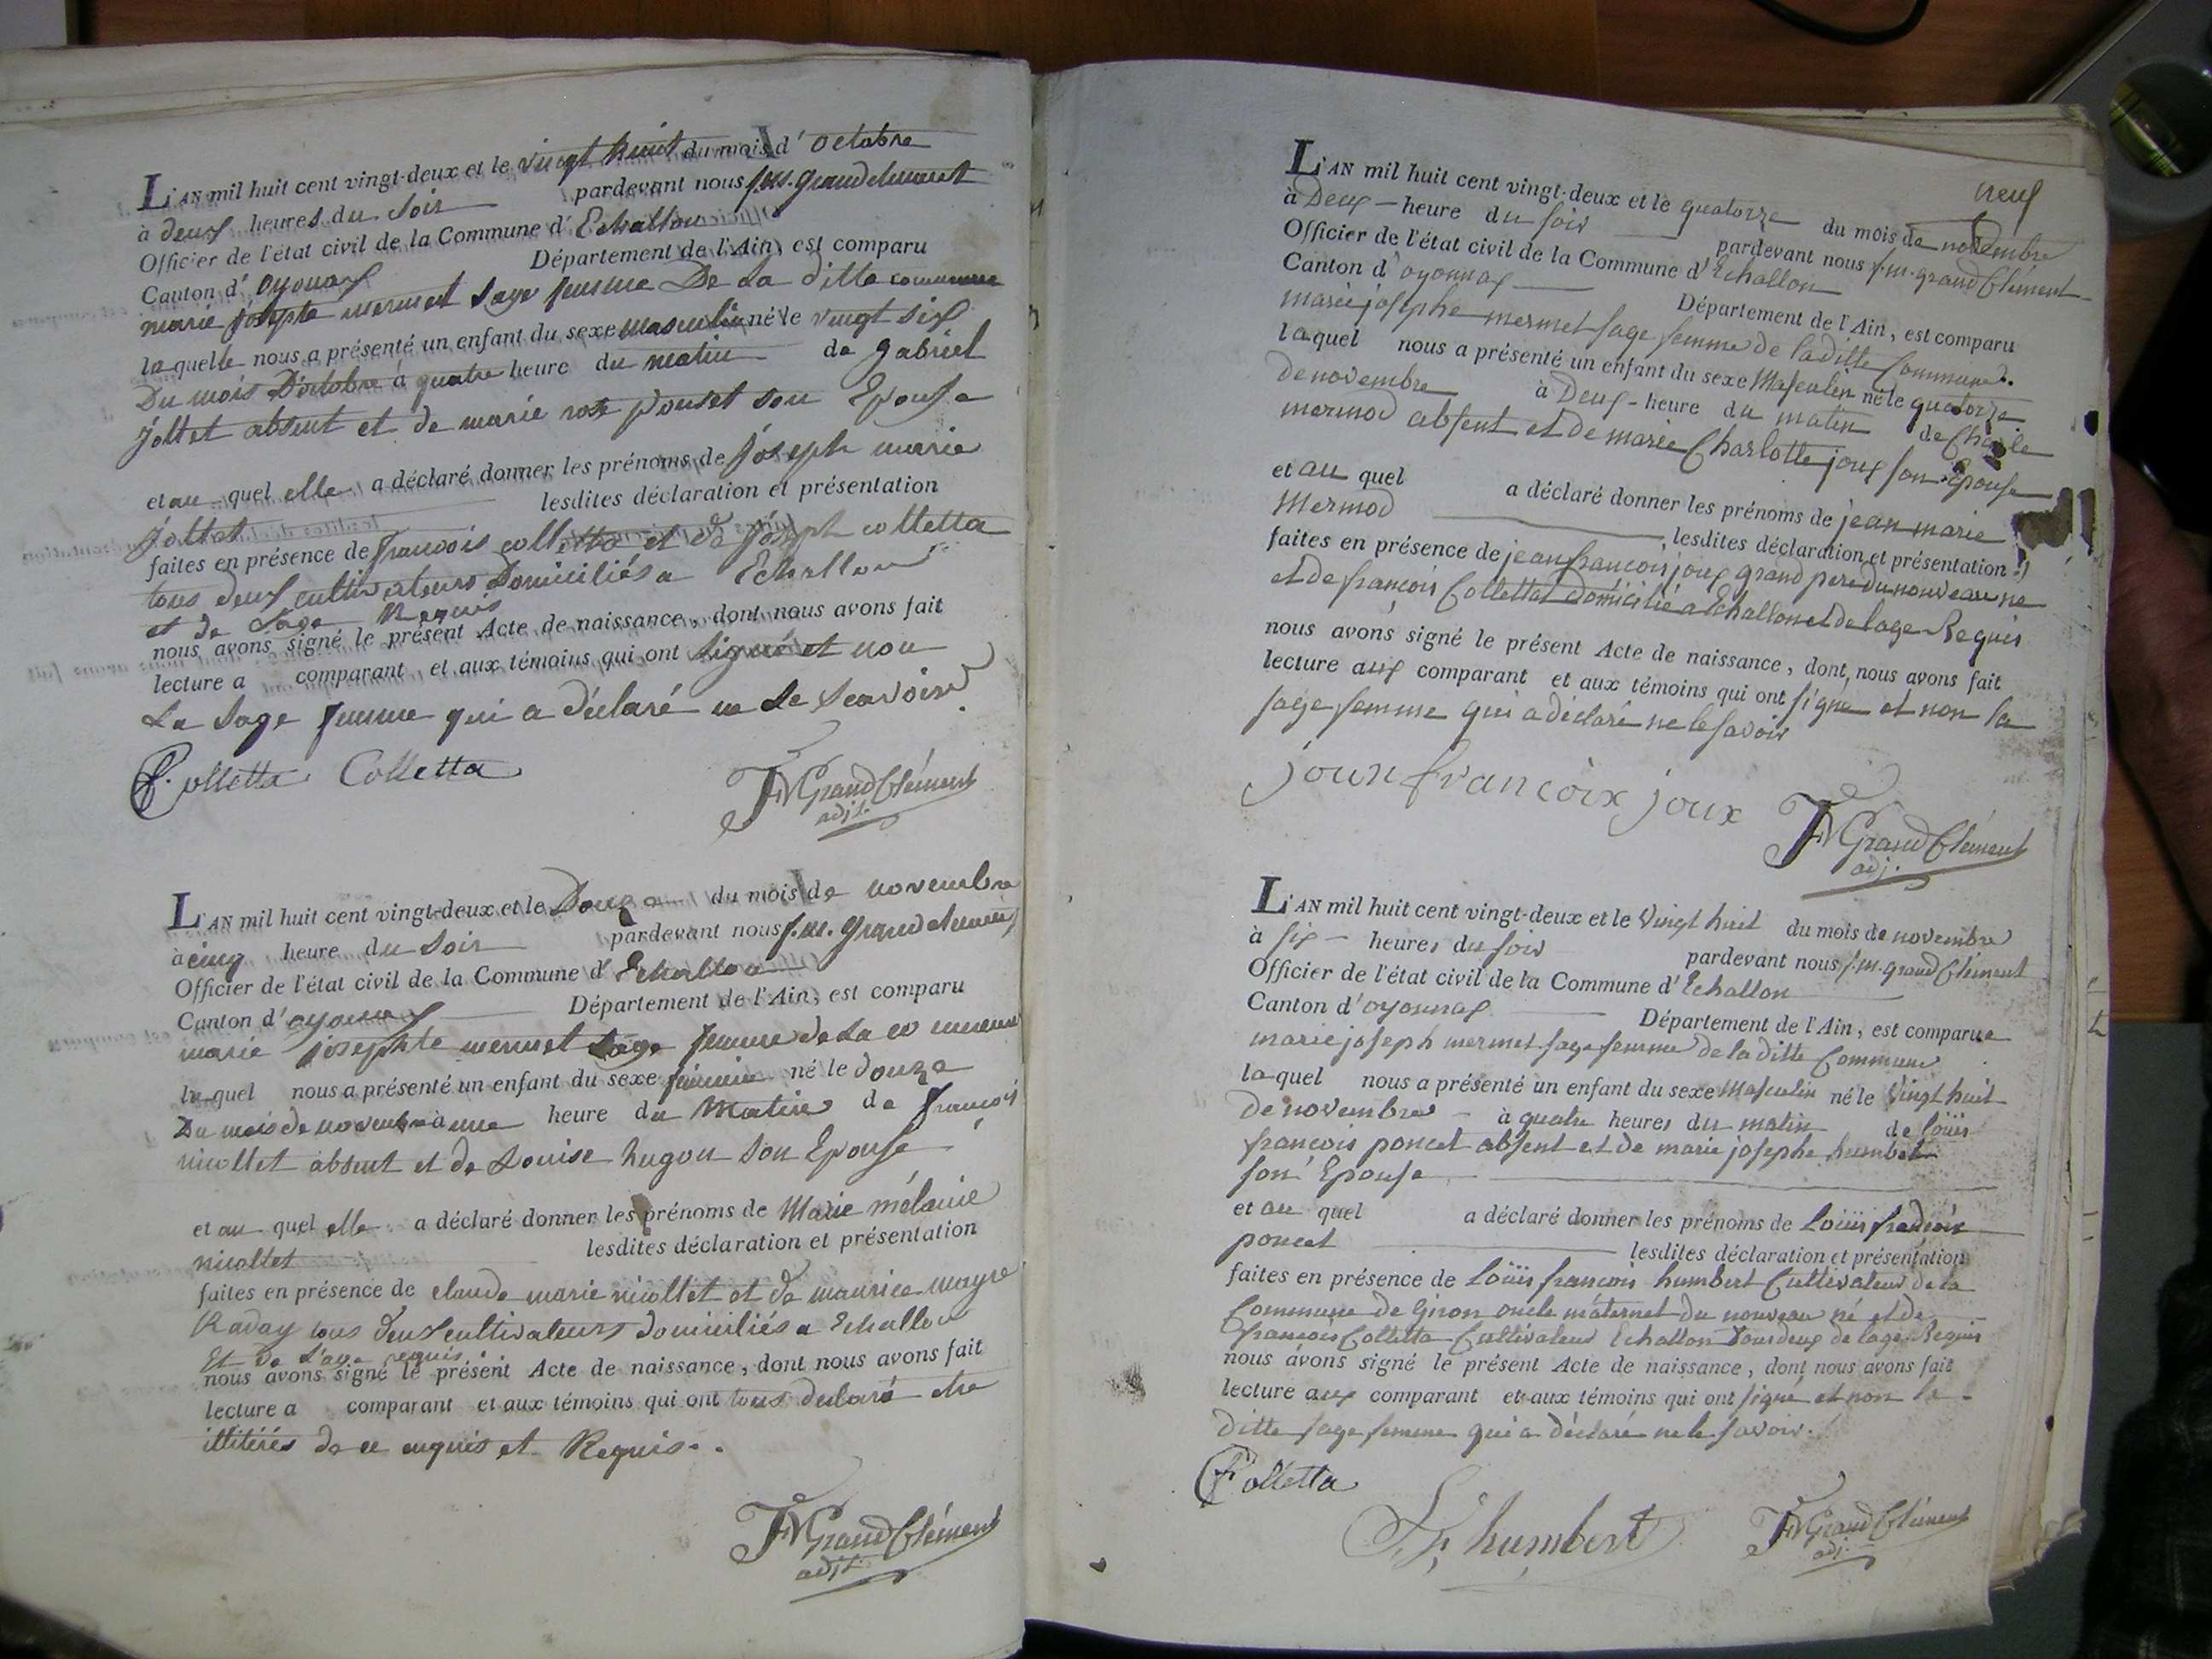 L'AN mil huit cent vingt-deux et le vingt huit du mois d'octobre
à deux heures du soir pardevant nous j.m. grandclement
Officier de l'état civil de la Commune d'Echallon
Canton d'oyonax Département de l'Ain, est comparu
marie josephte mermet sage femme De La ditte commune
laquelle nous a présenté un enfant du sexe masculin né le vingt six
Du mois D'octobre à quatre heure du matin de gabriel
jottet absent et de marie rose ponset son Epouse
et au quel elle a déclaré donner les prénoms de joseph marie
jottet lesdites déclaration et présentation
faites en présence de francois colletta et de joseph colletta
tous deux cultivateurs Domiciliés a Echallon
et de Lage Requis
nous avons signé le présent Acte de naissance, dont nous avons fait
lecture a comparant et aux témoins qui ont signé et non
La Sage femme qui a déclaré ne Le Scavoir.
F. Colletta Colletta
JM GrandClément
adjt.
L'AN mil huit cent vingt-deux et le Douze du mois de novembre
à cinq heure du Soir pardevant nous j.m. grand clement
Officier de l'état civil de la Commune d'Echallon
Canton d'oyonax Département de l'Ain, est comparu
marie josephte mermet Sage femme de La commune
laquel nous a présenté un enfant du sexe féminin né le douze
Du mois de novembre à une heure du Matin de françois
nicollet absent et de Louise hugon son Epouse
et au quel elle a déclaré donner les prénoms de Marie mélanie
nicollet lesdites déclaration et présentation
faites en présence de claude marie nicollet et de maurice mayre
Raday tous deux cultivateurs domiciliés a Echallon
Et de L'age requis
nous avons signé le présent Acte de naissance, dont nous avons fait
lecture a comparant et aux témoins qui ont tous declaré etre
illitérés de ce enquis et Requis.
JM GrandClément
adjt.
neuf
L'AN mil huit cent vingt-deux et le quatorze du mois de novembre
à Deux heure du soir pardevant nous j.m. grand Clément
Officier de l'état civil de la Commune d'Echallon
Canton d'oyonnax Département de l'Ain, est comparu
marie josephe mermet sage femme de la ditte Commune.
laquel nous a présenté un enfant du sexe Masculin né le quatorze
de novembre à Deux heure du matin de Charle
mermod absent et de marie Charlotte joux son Epouse
et au quel a déclaré donner les prénoms de jean marie
Mermod lesdites déclaration et présentation
faites en présence de jean francois joux grand pere du nouveau né
et de françois Colletta domicilié a Echallon et de lage Requis
nous avons signé le présent Acte de naissance, dont nous avons fait
lecture aux comparant et aux témoins qui ont signé et non la
sage femme qui a déclaré ne le savoir
joun francoix joux
JM GrandClément
adj.
L'AN mil huit cent vingt-deux et le Vingt huit du mois de novembre
à six heures du soir pardevant nous j.m. grand Clément
Officier de l'état civil de la Commune d'Echallon
Canton d'oyonnax Département de l'Ain, est comparue
marie joseph mermet sage femme de la ditte Commune
laquel nous a présenté un enfant du sexe Masculin né le Vingt huit
de novembre à quatre heures du matin de Loüis
francois poncet absent et de marie josephe humbert
son Epouse
et au quel a déclaré donner les prénoms de Loüis francois
poncet lesdites déclaration et présentation
faites en présence de Loüis francois humbert Cultivateur de la
Commune de Giron oncle maternel du nouveau né et de
francois Colletta Cultivateur Echallon Tous deux de lage Requis
nous avons signé le présent Acte de naissance, dont nous avons fait
lecture aux comparant et aux témoins qui ont signé et non la
ditte sage femme qui a déclaré ne le savoir.
F. Colletta
L, F, humbert
JM GrandClément
adj.